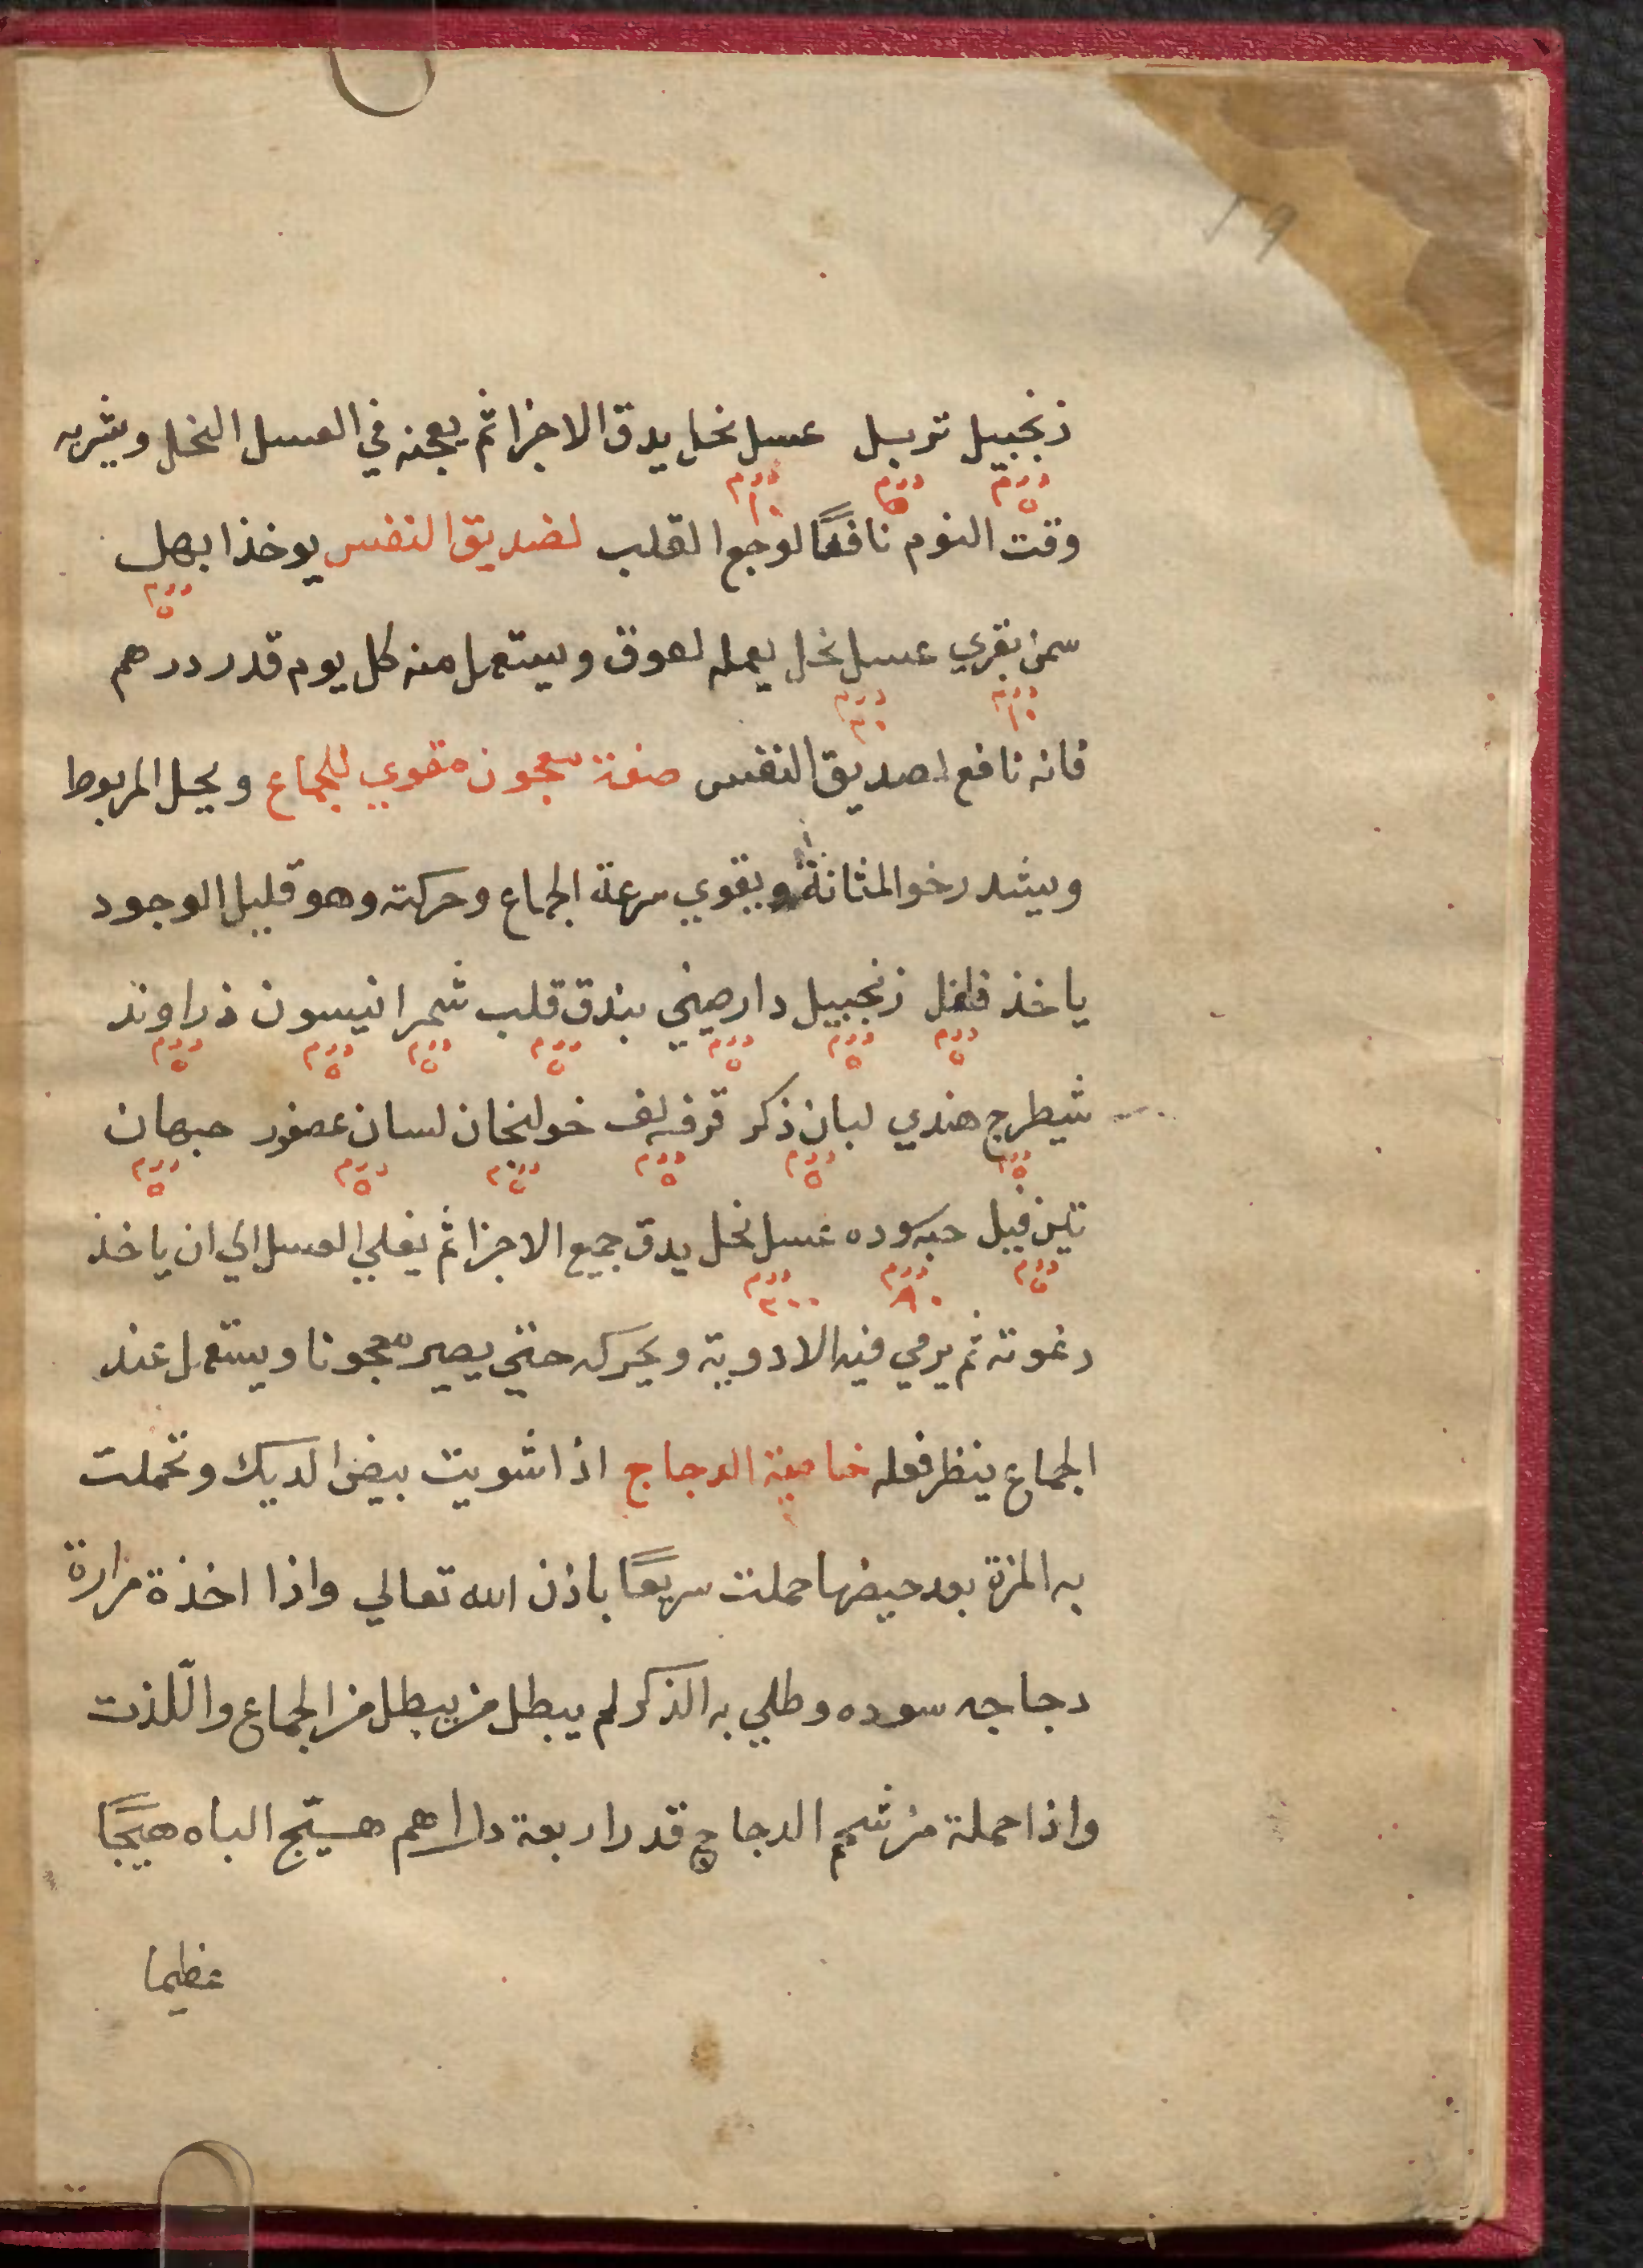 زنجبيل تربل عسل نحل يدق الاجزا ثم يعجنه في العسل النحل ويشربه
درم ٥ درم ٥ درم ١٠
وقت النوم نافعًا لوجع القلب لضديق النفس يوخذ ابهل
درم ٥
سمن بقري عسل نحل يعمله لعوق ويستعمل منه كل يوم قدر درهم
درم ١٠ درم ٣٠
فانه نافع لصديق النفس صفة معجون مقوي للجماع ويحل المربوط
ويشد رخو المثانة ويقوي سرعة الجماع وحركته وهو قليل الوجود
ياخذ فلفل زنجبيل دارصيني بندق قلب شمر انيسون ذراوند
درم ٥ درم ٥ درم ٥ درم ٥ درم ٥ درم ٥ درم ٥
شيطرج هندي لبان ذكر قرفه لف خولنجان لسان عصفور حبهان
درم ٥ درم ٥ درم ٥ درم ٥ درم ٥ درم ٥
فيل حبه سوده عسل نحل يدق جميع الاجزا ثم يغلي العسل الي ان ياخذ
درم ٥ درم درم ٣٠٠
رغوته ثم يرمي فيه الادوية ويحركه حتي يصير معجونا ويستعمل عند
الجماع ينظر فعله خاصية الدجاج اذا شويت بيض الديك وتحملت
به المرة بعد حيضها حملت سريعًا باذن الله تعالي واذا اخذة مرارة
دجاجه سوده وطلي به الذكر لم يبطل من يبطل من الجماع واللّذت
واذا حملة من شحم الدجاج قدر اربعة داراهم هسيّج الباه هيجًا
عظيما